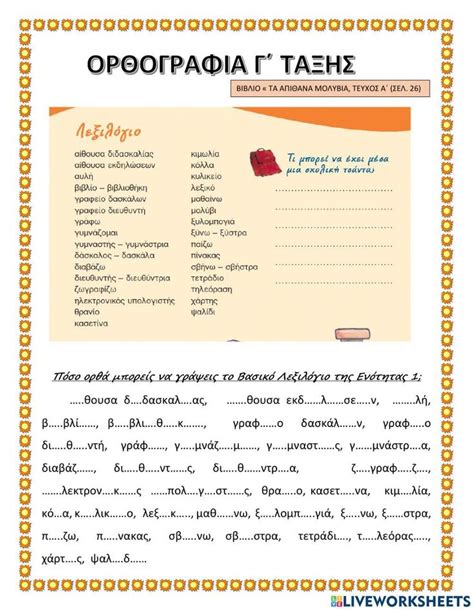 ΟΡΘΟΓΡΑΦΙΑ Γ΄ ΤΑΞΗΣ
ΒΙΒΛΙΟ « ΤΑ ΑΠΙΘΑΝΑ ΜΟΛΥΒΙΑ, ΤΕΥΧΟΣ Α΄ (ΣΕΛ. 26)
Λεξιλόγιο
αίθουσα διδασκαλίας
αίθουσα εκδηλώσεων
αυλή
βιβλίο – βιβλιοθήκη
γραφείο δασκάλων
γραφείο διευθυντή
γράφω
γυμνάζομαι
γυμναστής – γυμνάστρια
δάσκαλος – δασκάλα
διαβάζω
διευθυντής – διευθύντρια
ζωγραφίζω
ηλεκτρονικός υπολογιστής
θρανίο
κασετίνα
κιμωλία
κόλλα
κυλικείο
λεξικό
μαθαίνω
μολύβι
ξυλομπογιά
ξύνω – ξύστρα
παίζω
πίνακας
σβήνω – σβήστρα
τετράδιο
τηλεόραση
χάρτης
ψαλίδι
Τι μπορεί να έχει μέσα
μια σχολική τσάντα;
Πόσο ορθά μπορείς να γράψεις το Βασικό Λεξιλόγιο της Ενότητας 1;
.....θουσα δ....δασκαλ....ας, ........θουσα εκδ....λ....σε.....ν, ........λή,
β.....βλί....., β.....βλι...θ...κ......., γραφ....ο δασκάλ....ν, γραφ.....ο
δι....θ....ντή, γράφ...., γ....μνάζ...μ...., γ....μναστ......ς, γ....μνάστρ....α,
διαβάζ......, δι....θ....ντ....ς, δι....θ....ντρ....α, ζ....γραφ....ζ....,
.......λεκτρον...κ.....ς ......πολ....γ....στ....ς, θρα....ο, κασετ....να, κιμ....λία,
κό...α, κ.....λικ.....ο, λεξ....κ...., μαθ....νω, ξ....λομπ....γιά, ξ....νω, ξ....στρα,
π.....ζω, π.....νακας, σβ....νω, σβ....στρα, τετράδι...., τ....λεόρασ....,
χάρτ....ς, ψαλ....δ......
LIVEWORKSHEETS